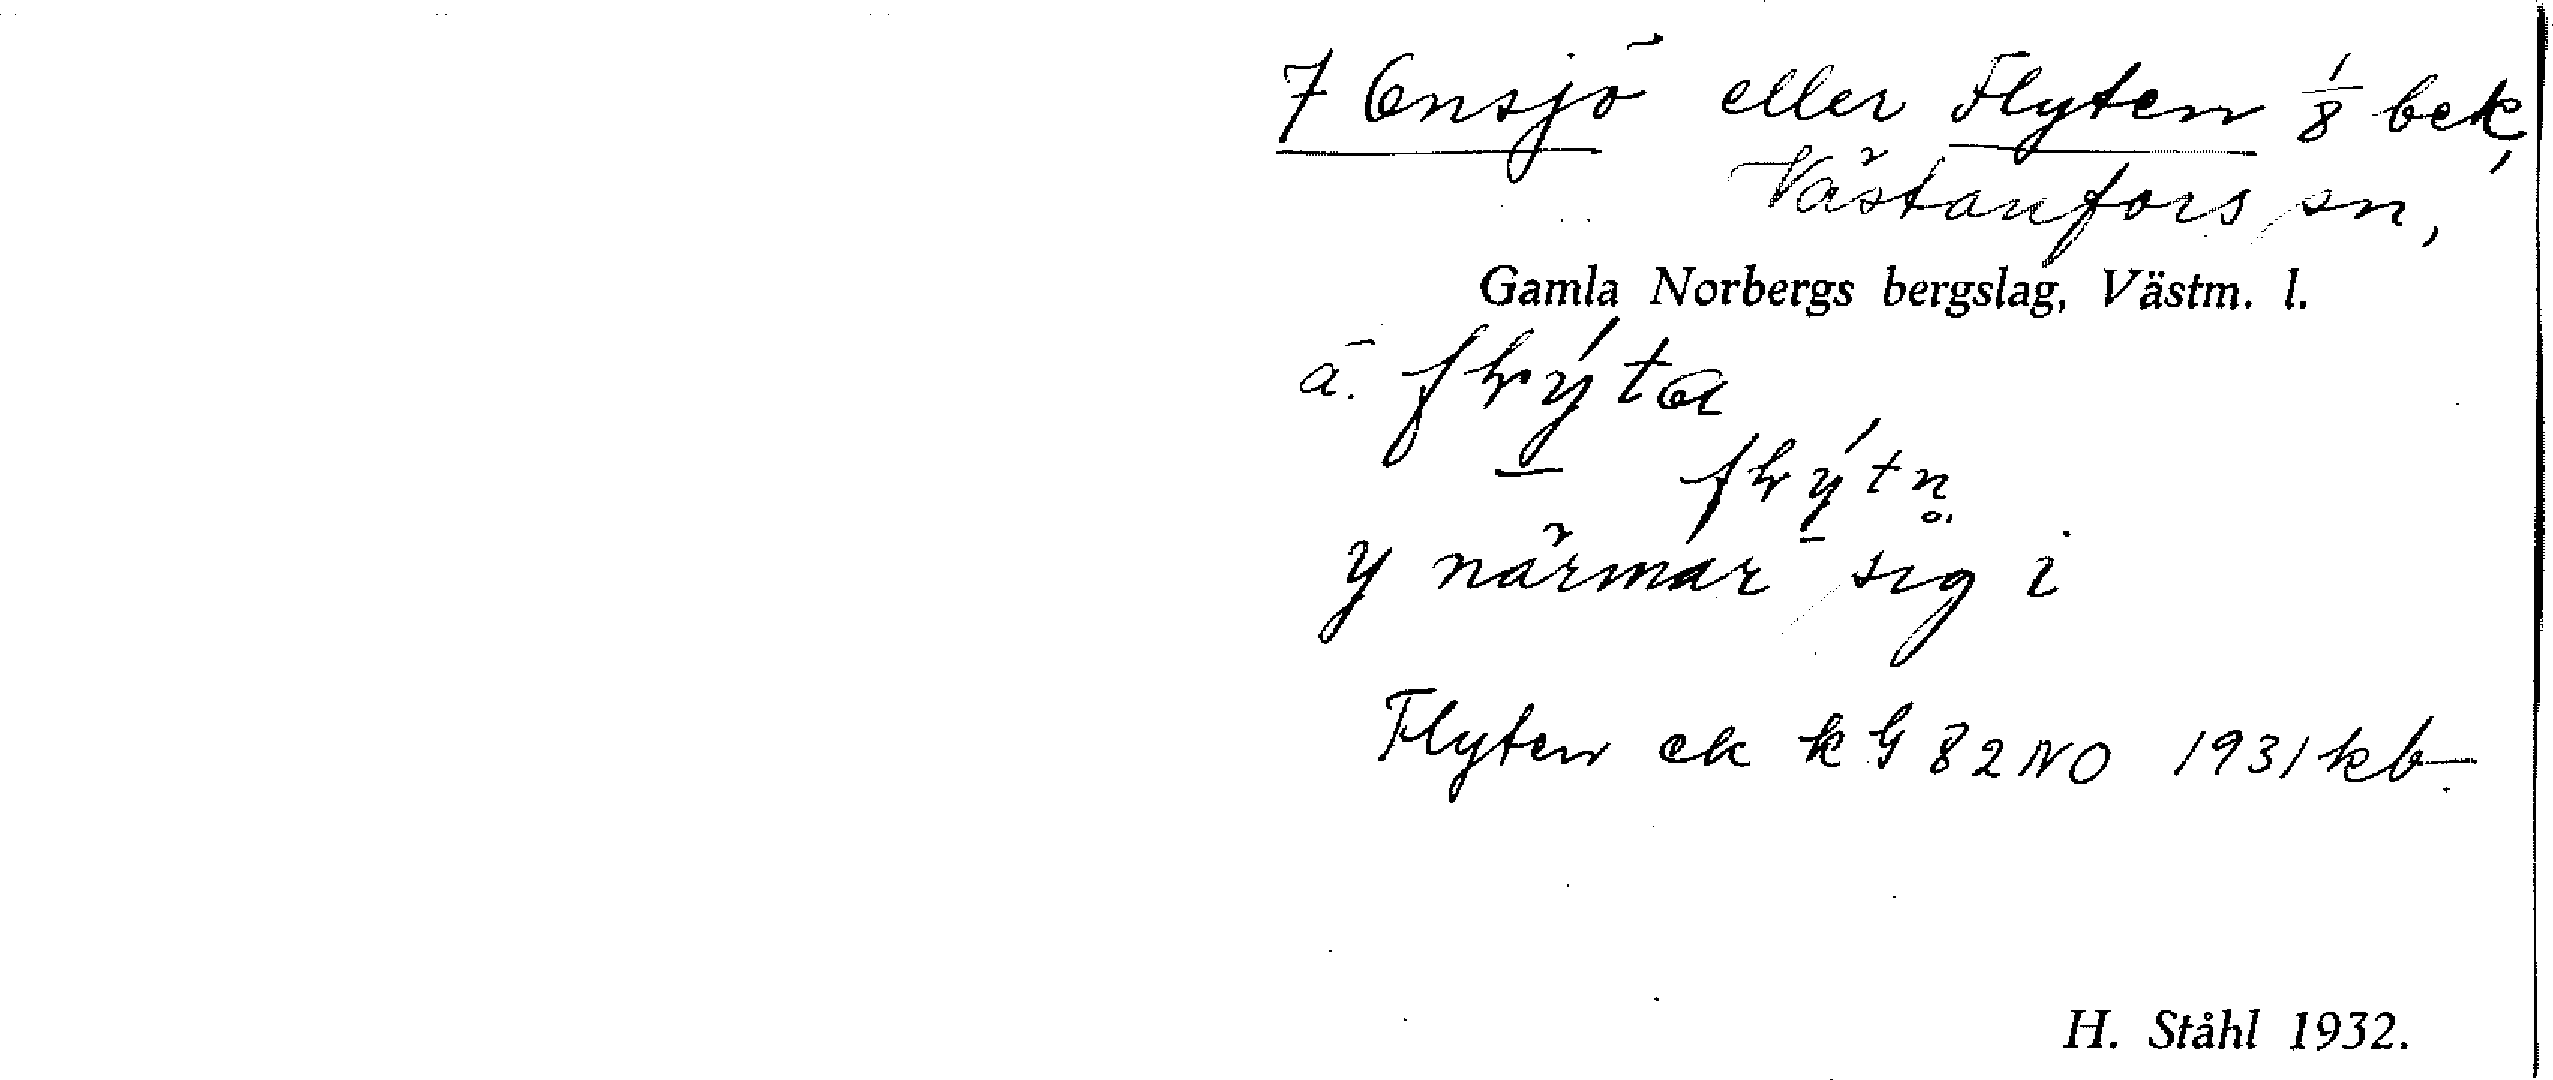 7 Ensjö eller Flyten 1/8 bek,
Västanfors sn,
Gamla Norbergs bergslag, Västm. l.
a.
y närmar sig i
Flyten ek kG 82 NO 1931 kb
H. Ståhl 1932.